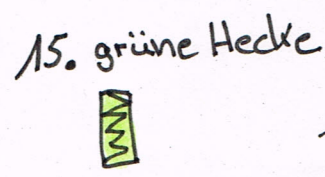 15. grüne Hecke